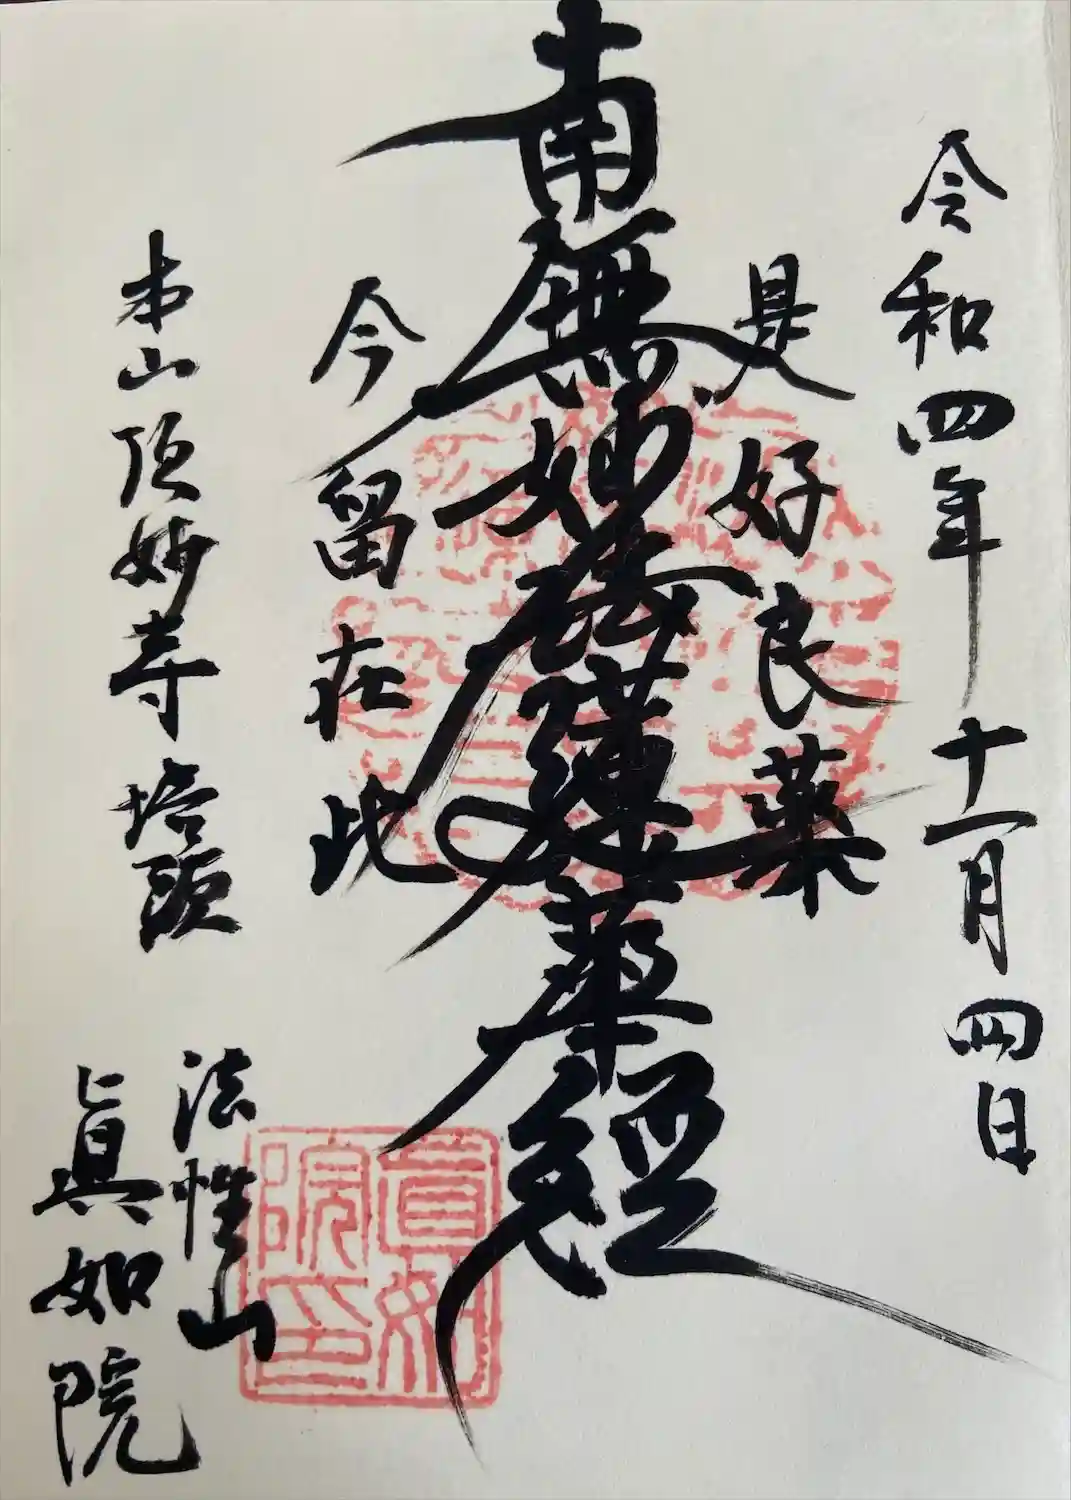 令和四年十一月四日
是好良薬
南無妙法蓮華経
今留在此
本山頂妙寺塔頭
法性山
眞如院
眞如院印